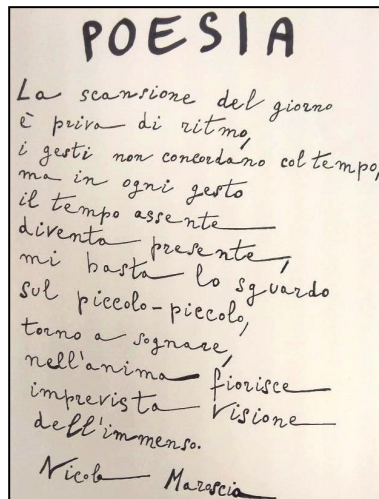 POESIA
La scansione del giorno
è priva di ritmo,
i gesti non concordano col tempo,
ma in ogni gesto
il tempo assente
diventa presente,
mi basta lo sguardo
sul piccolo-piccolo,
torno a sognare,
nell'anima fiorisce
imprevista visione
dell'immenso.
Nicola Marascia